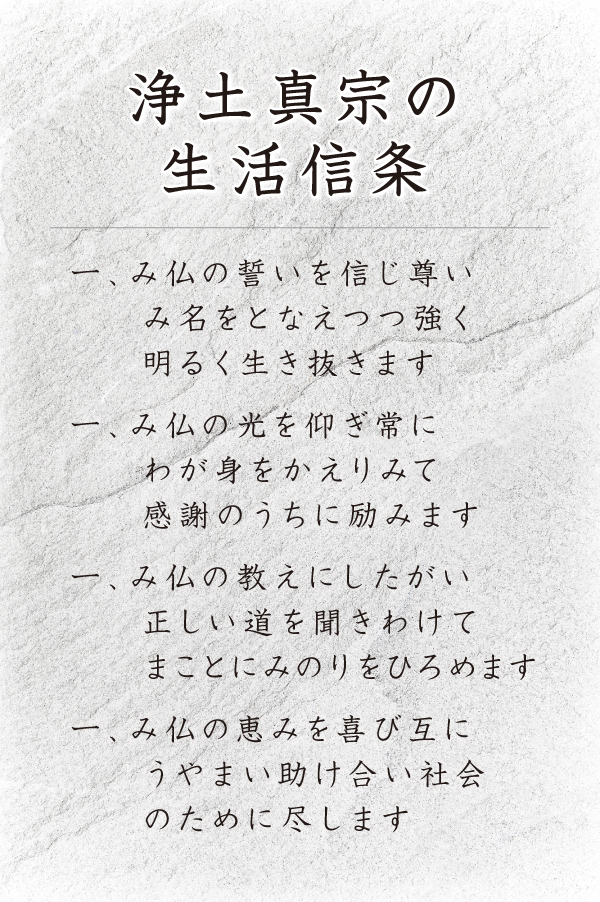 浄土真宗の
生活信条
一、み仏の誓いを信じ尊い
み名をとなえつつ強く
明るく生き抜きます
一、み仏の光を仰ぎ常に
わが身をかえりみて
感謝のうちに励みます
一、み仏の教えにしたがい
正しい道を聞きわけて
まことにみのりをひろめます
一、み仏の恵みを喜び互に
うやまい助け合い社会
のために尽します